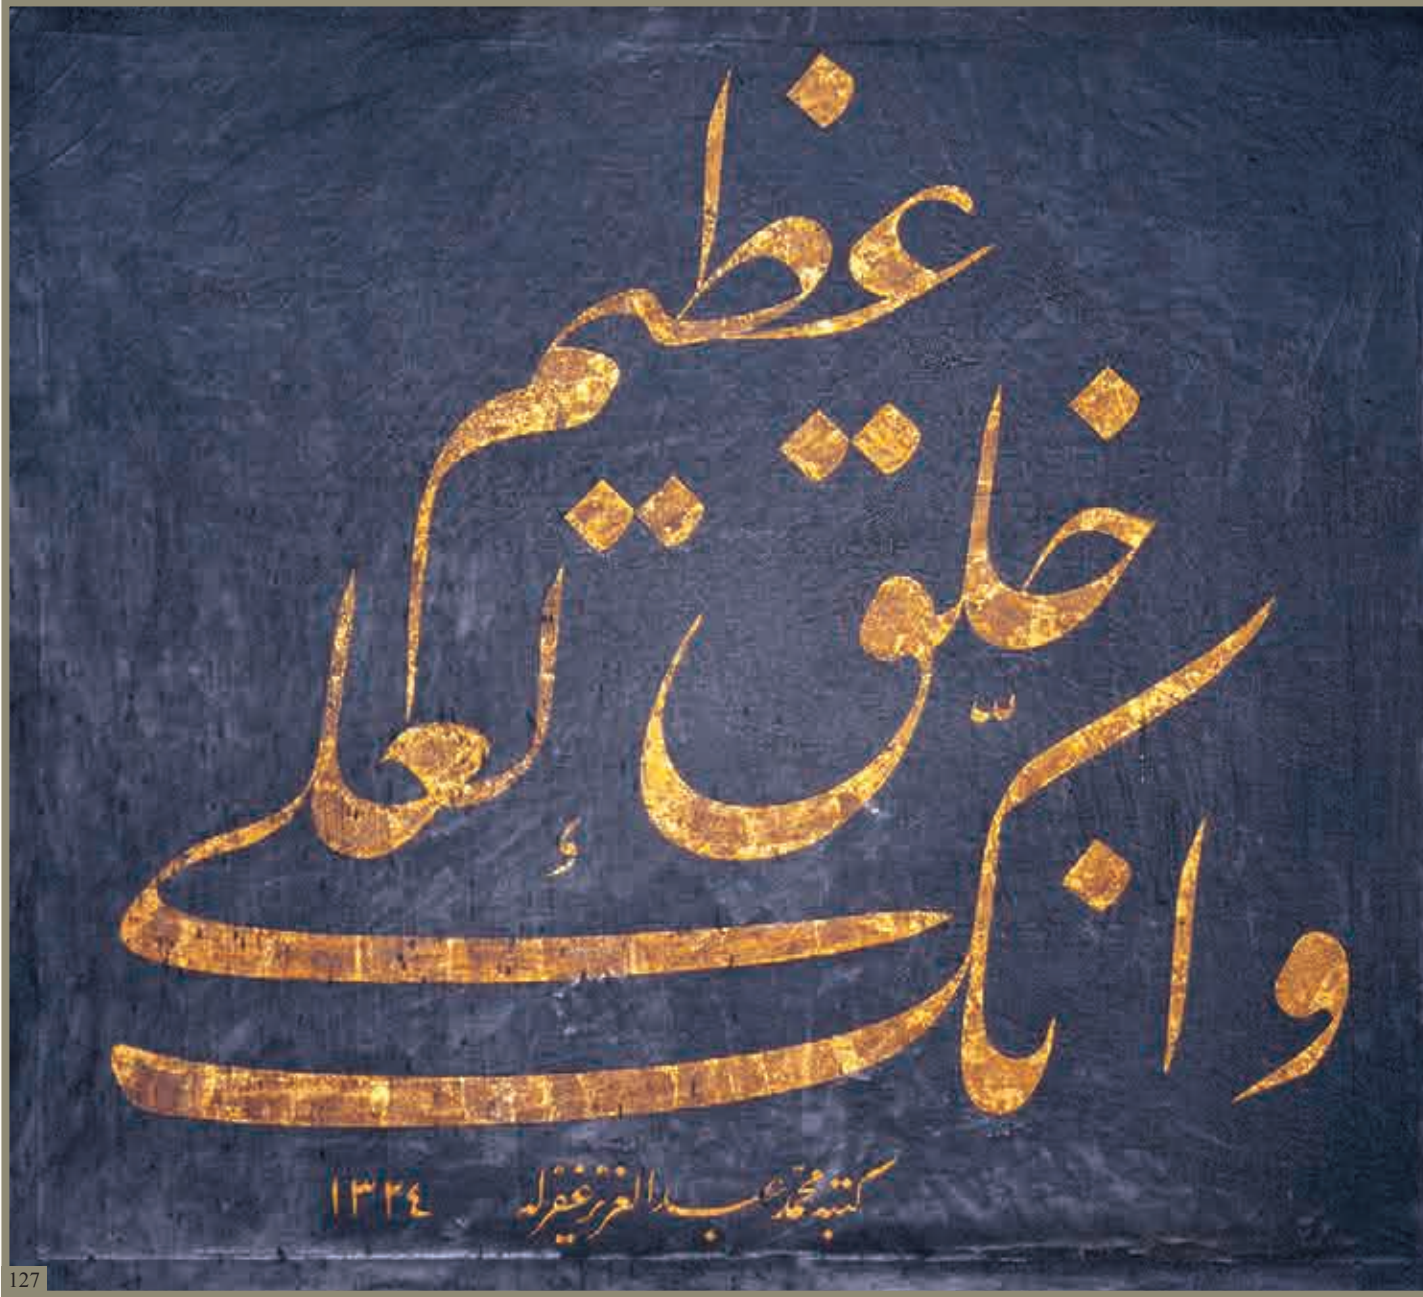 وانك لعلى
خلق
عظيم
كتبه محمد عبد العزيز غفر له ١٣٢٤
127